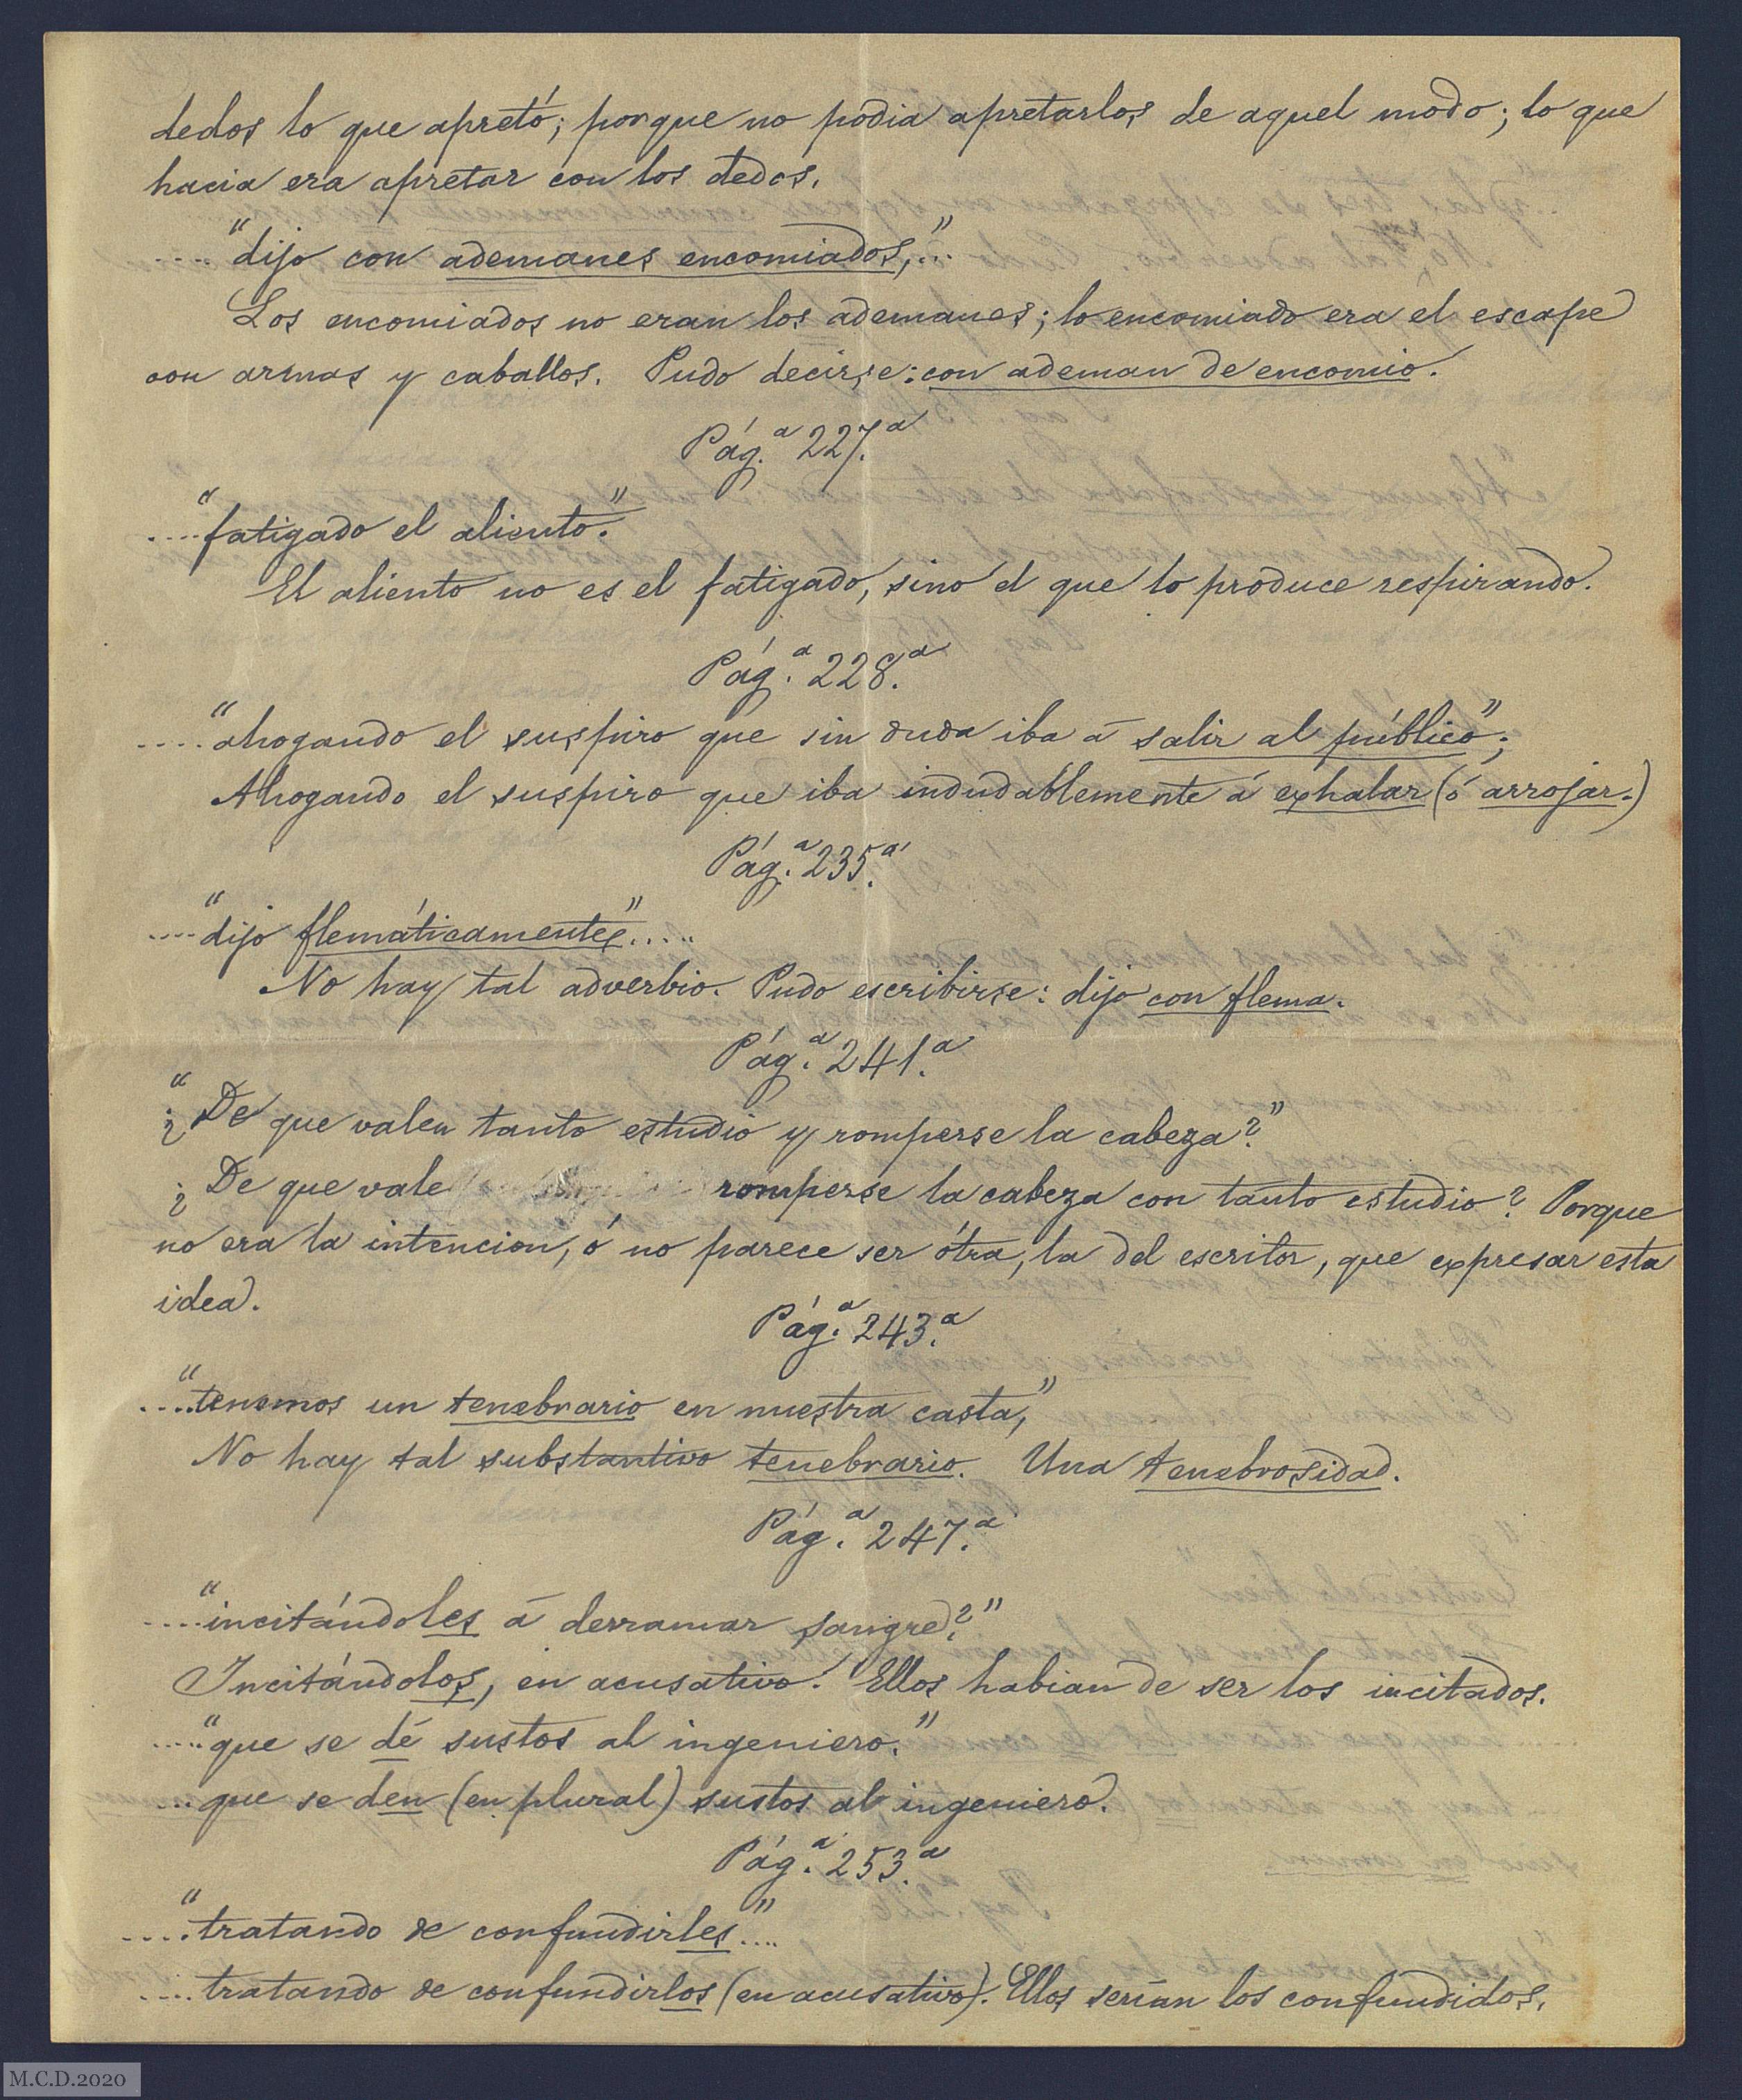 dedos lo que apretó; porque no podia apretarlos de aquel modo; lo que
hacia era apretar con los dedos.
....."dijo con ademanes encomiados,"...
Los encomiados no eran los ademanes; lo encomiado era el escape
con armas y caballos. Pudo decirse: con ademan de encomio.
Pág.ª 227.ª
....."fatigado el aliento."
El aliento no es el fatigado, sino el que lo produce respirando.
Pág.ª 228.ª
....."ahogando el suspiro que sin duda iba á salir al público";
Ahogando el suspiro que iba indudablemente á exhalar (ó arrojar.)
Pág.ª 235.ª
....."dijo flemáticamente".....
No hay tal adverbio. Pudo escribirse: dijo con flema.
Pág.ª 241.ª
"¿De que valen tanto estudio y romperse la cabeza?"
¿De que vale romperse la cabeza con tanto estudio? Porque
no era la intencion, ó no parece ser ótra, la del escritor, que expresar esta
idea.
Pág.ª 243.ª
....."tenemos un tenebrario en nuestra casta,"
No hay tal substantivo tenebrario. Una tenebrosidad.
Pág.ª 247.ª
....."incitándoles á derramar sangre?"
Incitándolos, en acusativo. Ellos habian de ser los incitados.
....."que se dé sustos al ingeniero."
...que se den (en plural) sustos al ingeniero.
Pág.ª 253.ª
....."tratando de confundirles"....
.....tratando de confundirlos (en acusativo). Ellos serían los confundidos.
M.C.D.2020